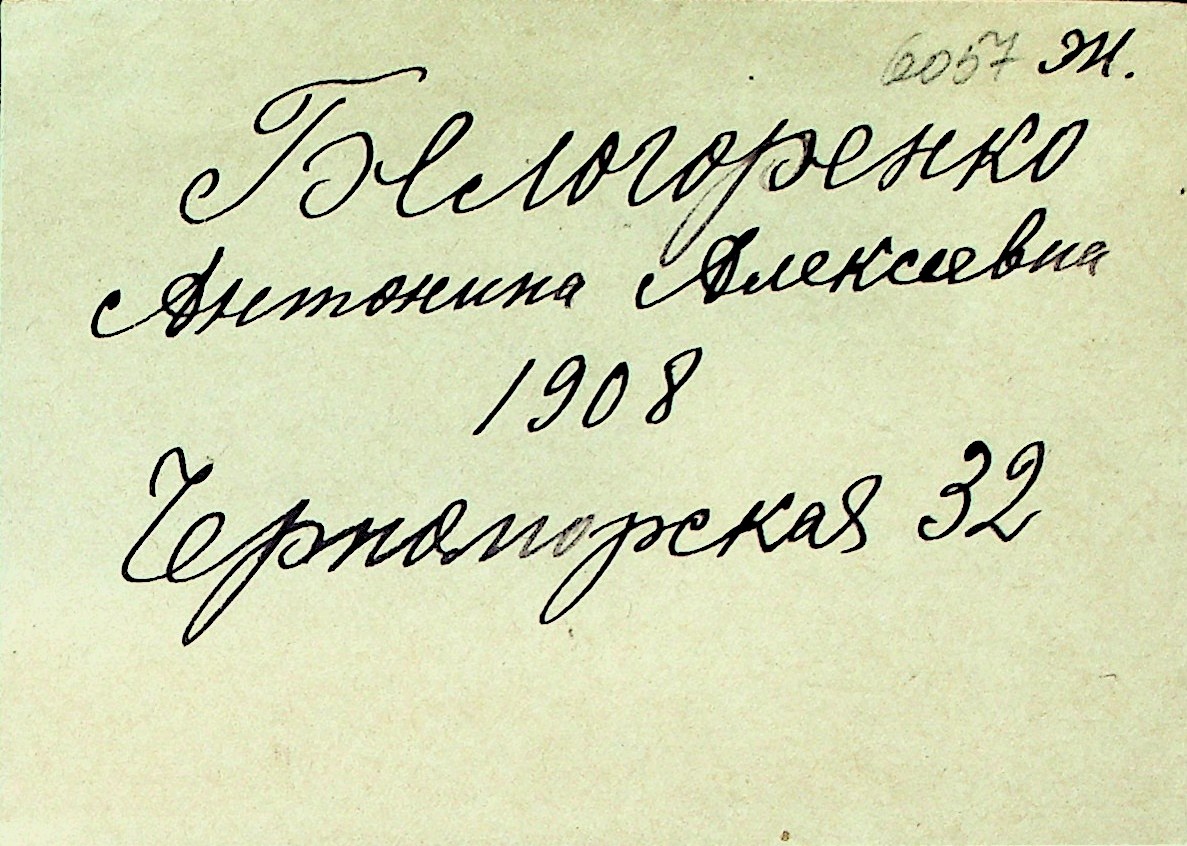 6057 ж.
Белогоренко
Антонина Алексеевна
1908
Черноморская 32